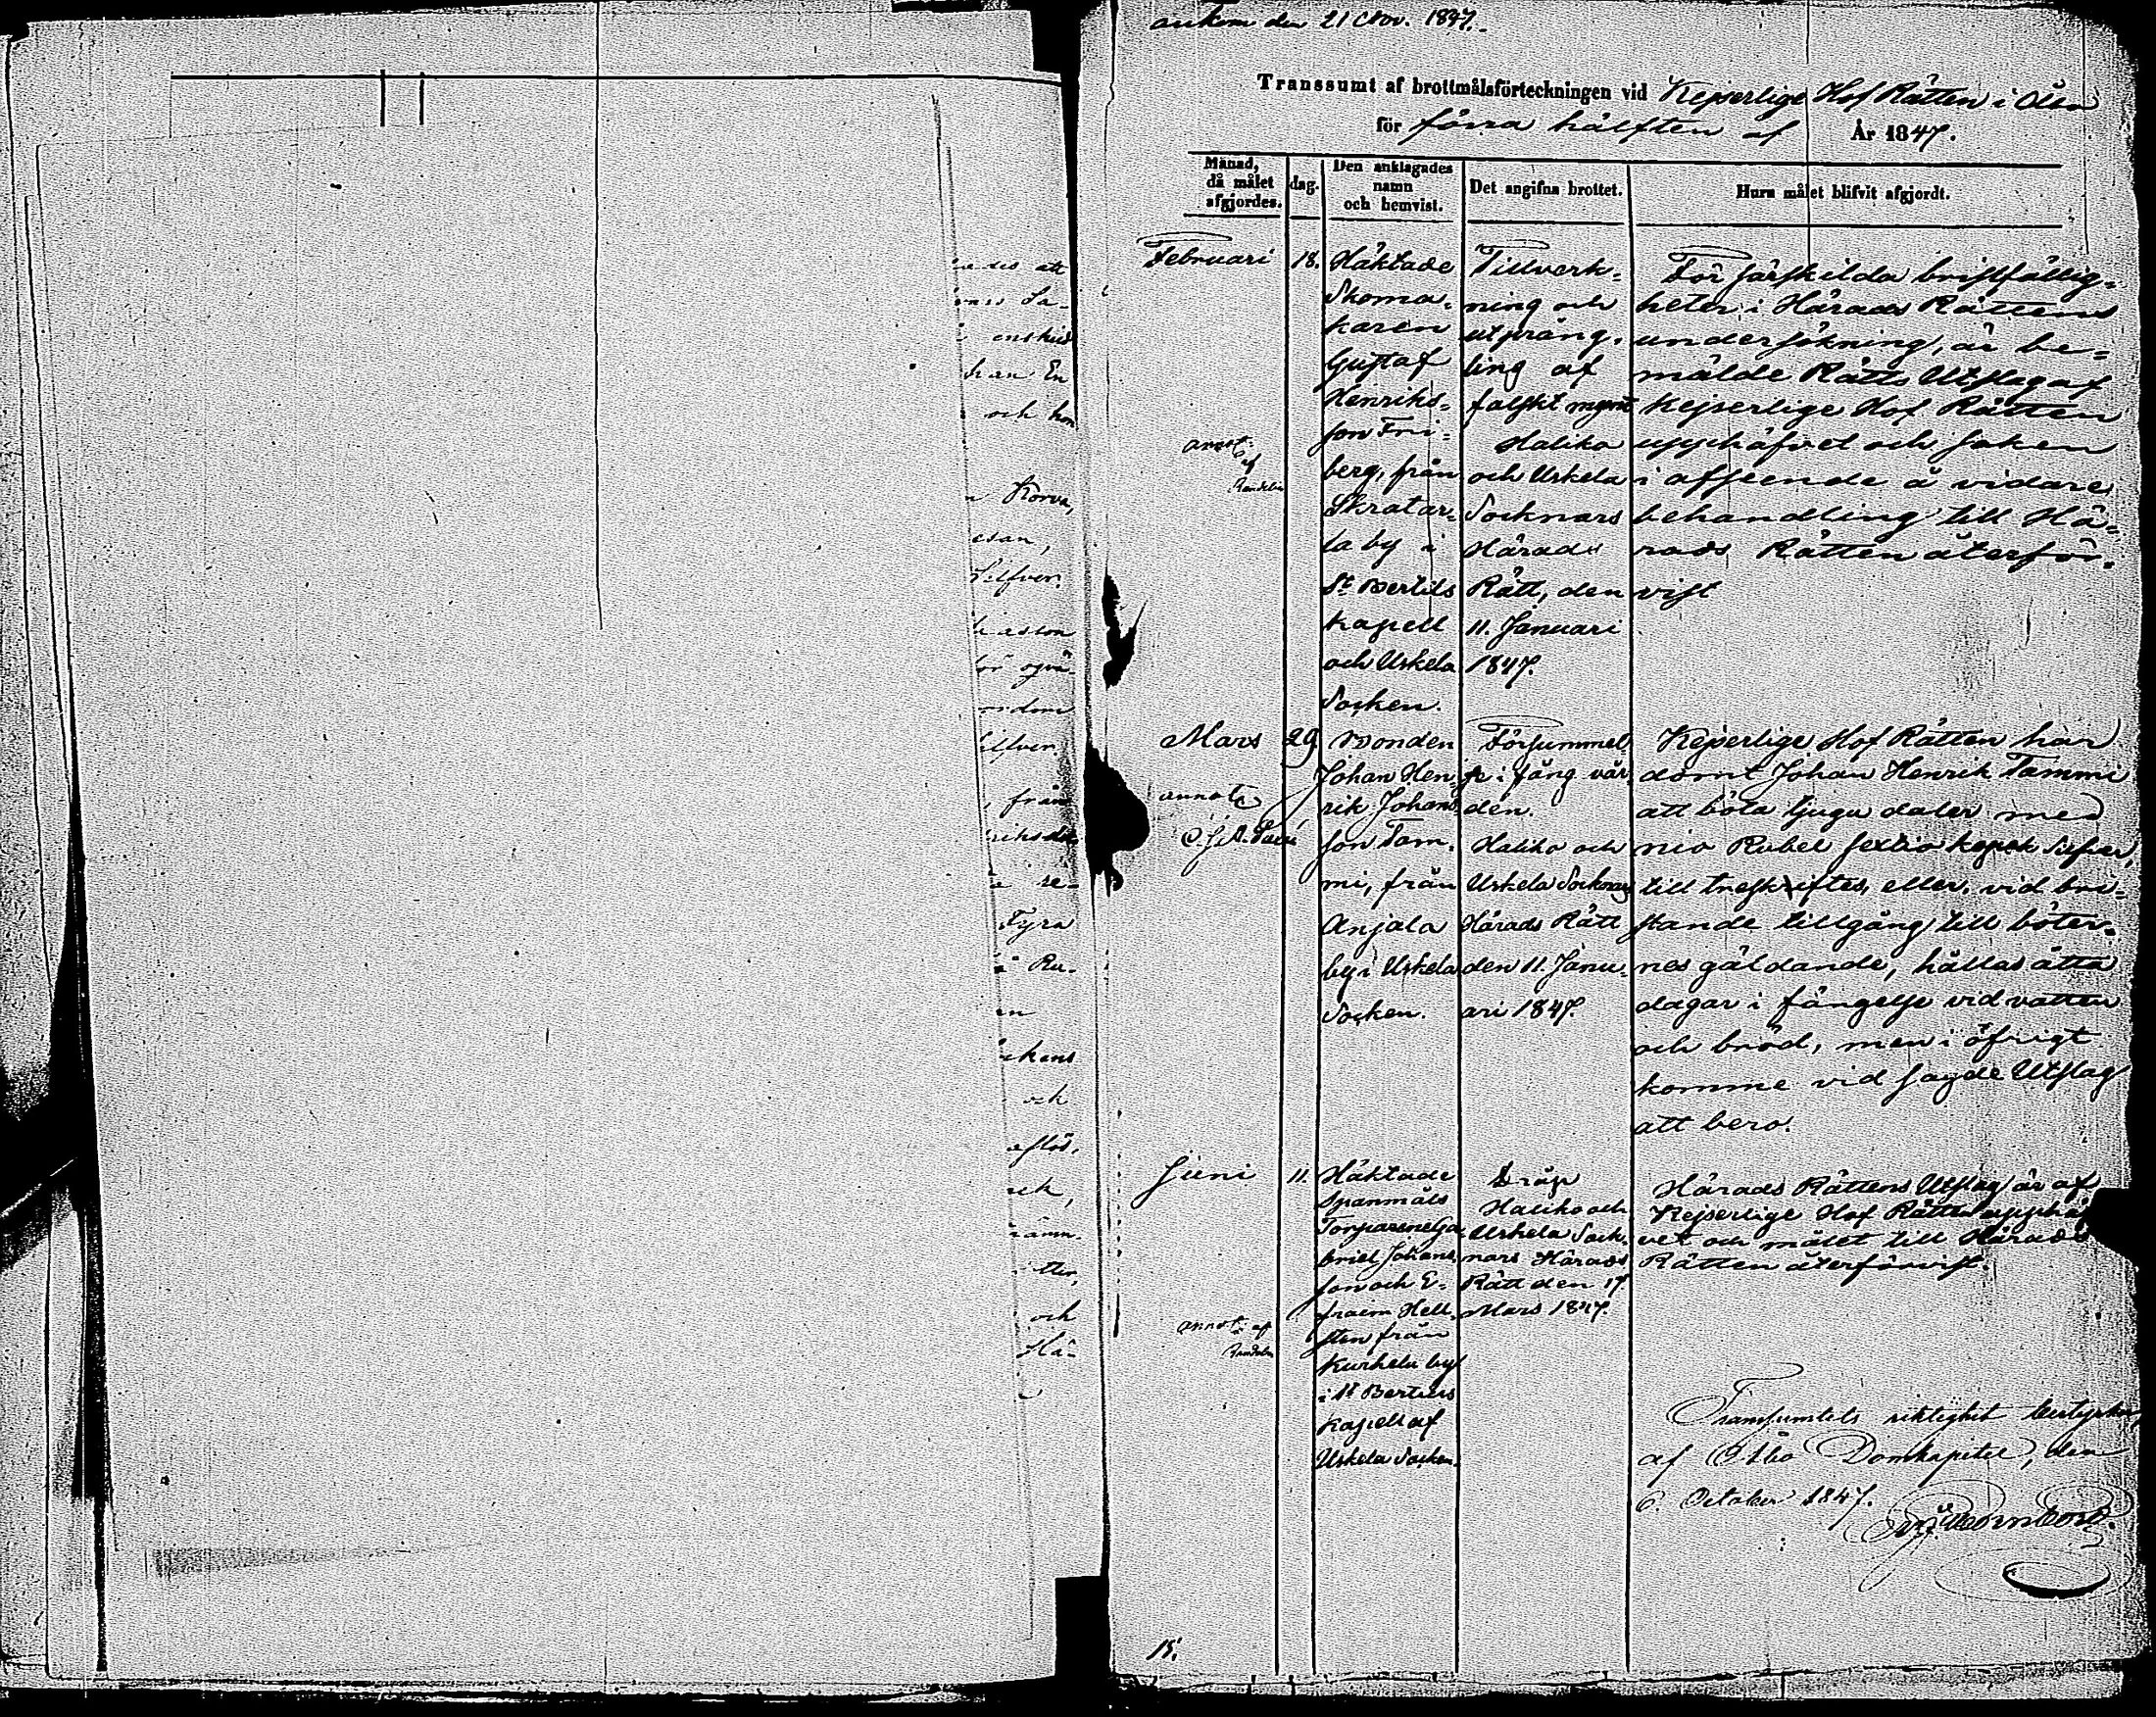 ankom den 21 Nov. 1847.
Transsumt af brottmålsförteckningen vid Kejserlige Hof Rätten i Åbo
för förra hälften af År 1847.
Månad, då målet afgjordes.
dag.
Den anklagades namn och hemvist.
Det angifna brottet.
Huru målet blifvit afgjordt.
Februari
18.
Häktade
Skoma-
karen
Gustaf
Henriks-
son Fri-
berg, från
Skratar-
la by i
St Bertils
Kapell
och Uskela
Socken.
Tillverk-
ning och
utpräng-
ling af
falskt mynt
Haliko
och Uskela
Socknars
Härads
Rätt, den
11. Januari
1847.
För särskilda bristfällig-
heter i Härads Rättens
undersökning, är be-
mälde Rätts Utslag af
Kejserlige Hof Rätten
upphäfvet och saken
i afseende å vidare
behandling till Hä-
rads Rätten återför-
vist
annot.
af
Mars
29
annot.
Bonden
Johan Hen-
rik Johans-
son Tam-
mi, från
Anjala
by i Uskela
Socken.
Försummel-
se i fång vår-
den.
Haliko och
Uskela Socknars
Härads Rätt
den 11. Janu-
ari 1847.
Kejserlige Hof Rätten har
dömt Johan Henrik Tammi
att böta tjugu daler med
nio Rubel sextio kopek Silfver,
till treskiftes, eller, vid bri-
stande tillgång till böter-
nes gäldande, hållas åtta
dagar i fängelse vid vatten
och bröd, men i öfrigt
komme vid sagde Utslag
att bero.
Juni
11.
annot. af
Häktade
Spanmåls
Torparene Ga-
briel Johans-
son och E-
fraim Hell-
sten från
Kurkela by
i St Bertils
Kapell af
Uskela Socken.
Dråp
Haliko och
Uskela Sock-
nars Härads
Rätt den 17
Mars 1847.
Härads Rättens Utslag är af
Kejserlige Hof Rätten upphäf-
vet och målet till Härads
Rätten återförvist.
Transsumtets riktighet bestyrkes
af Åbo Domkapitel, den
6. October 1847.
15.
ades att
och hon
Korva,
Silfver.
Silfver
från
Fyra
Ru-
och
och
Hä-